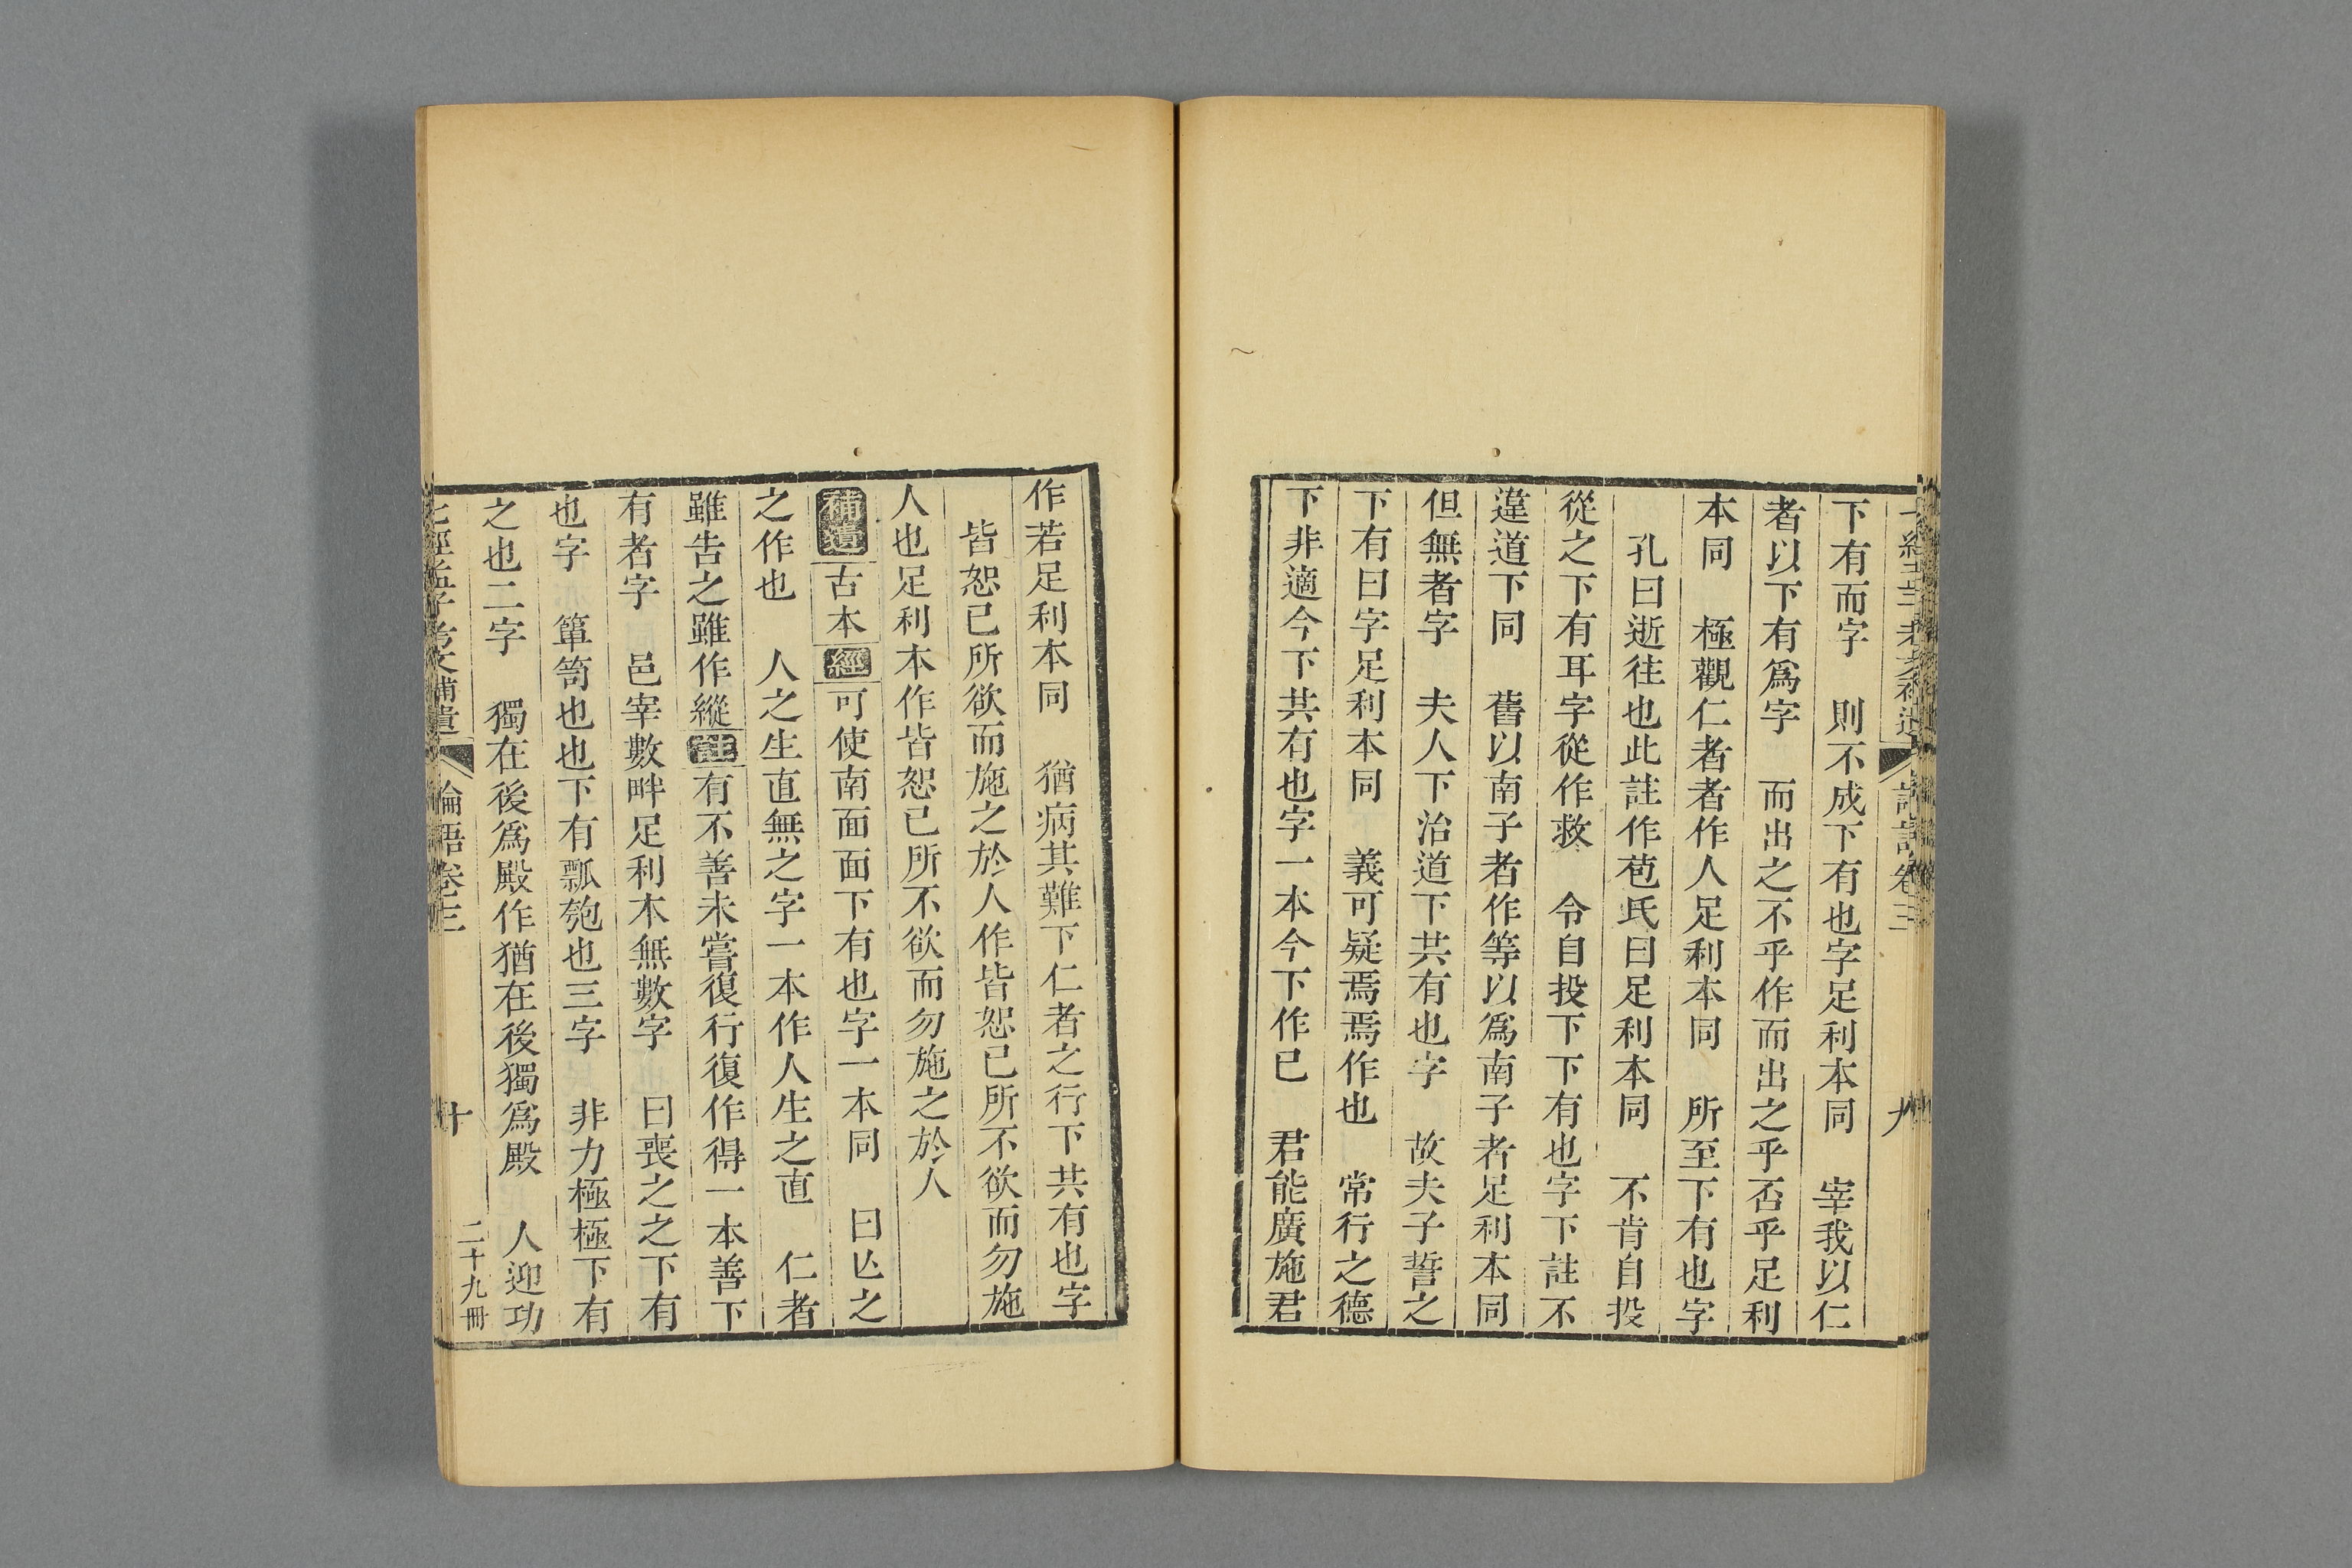 下有而字　則不成下有也字足利本同　宰我以仁
者以下有爲字　而出之不乎作而出之乎否乎足利
本同　極觀仁者者作人足利本同　所至下有也字
孔曰逝往也此註作苞氏曰足利本同　不肯自投
從之下有耳字從作救　令自投下下有也字下註不
違道下同　舊以南子者作等以爲南子者足利本同
但無者字　夫人下治道下共有也字　故夫子誓之
下有曰字足利本同　義可疑焉焉作也　常行之德
下非適今下共有也字一本今下作已　君能廣施君
作若足利本同　猶病其難下仁者之行下共有也字
皆恕已所欲而施之於人作皆恕已所不欲而勿施
人也足利本作皆恕已所不欲而勿施之於人
補遺古本經可使南面面下有也字一本同　曰亾之
之作也　人之生直無之字一本作人生之直　仁者
雖告之雖作縱註有不善未嘗復行復作得一本善下
有者字　邑宰數畔足利本無數字　曰喪之之下有
也字　簞笥也也下有瓢瓠也三字　非力極極下有
之也二字　獨在後爲殿作猶在後獨爲殿　人迎功
七經孟子考文補遺　論語卷三　十　二十九冊